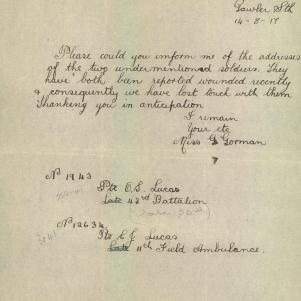 Gawler Sth
14-8-17
Please could you inform me of the addresses
of the two undermentioned soldiers. They
have both been reported wounded recently
& consequently we have lost touch with them
Thanking you in anticipation
I remain
Your etc
Miss G Gorman
No 1943
Pte E.S. Lucas
Late 43rd Battalion
No 12634
Pte E J Lucas
Late 11th Field Ambulance.